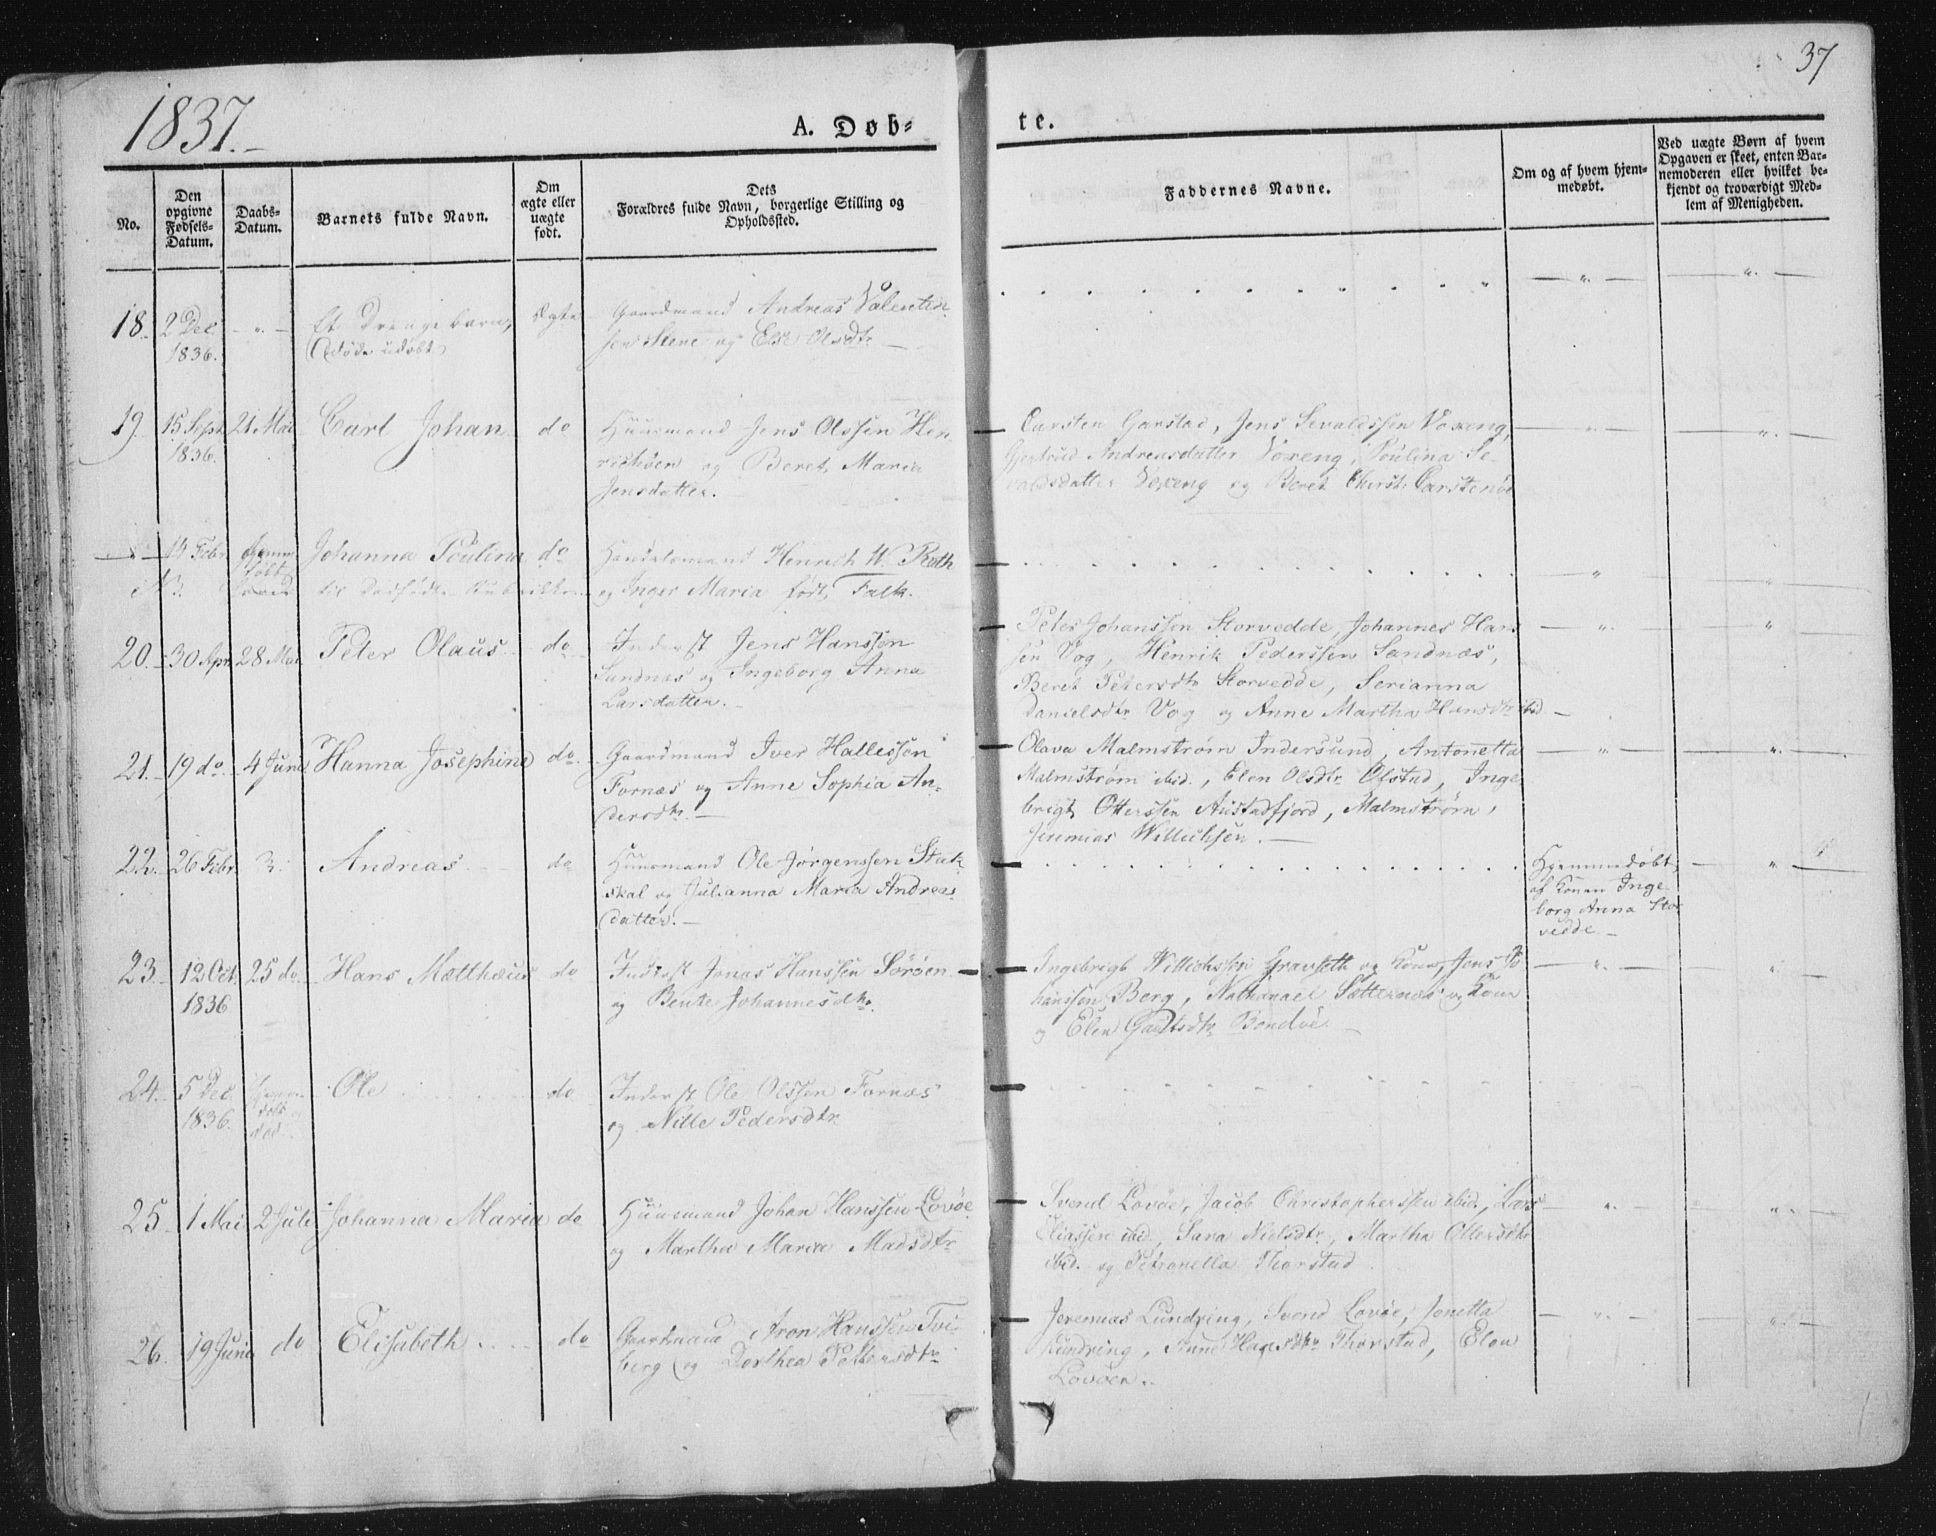 37
1837.
A. Døb-
te.
No.
Den opgivne Fødsels-Datum.
Daabs-Datum.
Barnets fulde Navn.
Om ægte eller uægte født.
Dets Forældres fulde Navn, borgerlige Stilling og Opholdssted.
Faddernes Navne.
Om og af hvem hjemmedøbt.
Ved uægte Børn af hvem Opgaven er skeet, enten Barnemoderen eller hvilket bekjendt og troværdigt Medlem af Menigheden.
18. 2 Dec. „ Et Drengebarn, Ægte Gaardmand Andreas Valentin
1836. udøbt sen Stene og Else Olsdtr
19. 15 Sept. 21 Mai Carl Johan do Huusmand Jens Olssen Hen
1836. richsøen og Beret Maria
Jensdatter.
Carsten Garstad, Jens Sevaldssen Voxeng,
Gjertrud Andreasdatter Voxeng, Poulina Se-
valdsdatter Voxeng og Beret Christ: Carstenøe
14 Febr. Hjemm Johanna Poulina do Handelsmand Henrich W. Rath
N3. døbt til Dødfødte Rubrikken og Inger Maria født Falk.
20. 30 Apr. 28 Mai Peter Olaus do Inderst Jens Hanssen
Sandnæs og Ingeborg Anna
Larsdatter.
Peter Johanssen Storvedde, Johannes Hans
sen Vog, Henrik Pederssen Sandnæs,
Beret Petersdtr Storvedde, Serianna
Danielsdtr Vog og Anne Martha Hansdtr ibid
21. 19 do 4 Juni Hanna Josephine do Gaardmand Iver Hallessen
Fornæs og Anne Sophia An-
dersdtr.
Olava Malmstrøm Indersund, Antonetta
Malmstrøm ibid., Elen Olsdtr Olstad, Inge
brigt Otterssen Austadfjord, Malmstrøm,
Jeremias Willichsen.
22. 26 Febr. Andreas do Huusmand Ole Jørgenssen Stak
skal og Julianna Maria Andreas
datter.
Hjemmedøbt
af Konen Inge
borg Anna Stor
vedde.
23. 12 Oct. 25 do Hans Matthæus do Inderst Jonas Hanssen Sørøen
1836 og Bente Johannesdtr.
Ingebrigt Willichssen Gravseth og Kone, Jens Jo
hanssen Berg, Nathanael Sætternæs og Kone
og Elen Bondøe.
24. 5 Dec. Hjemme Ole do Inderst Ole Olssen Fornæs
1836. døbt og død og Nille Pedersdtr
25. 1 Mai 2 Juli Johanna Maria do Huusmand Johan Hanssen Lovøe
og Martha Maria Madsdtr
Svend Lovøe, Jacob Christopherssen ibid, Lars
Eliassen ibid., Sara Nielsdtr, Martha Ottersdtr
ibid. og Petronella Thorstad.
26. 19 Juni do Elisabeth do Gaardmand Aron Hanssen Tvi
berg og Dorthea Pettersdtr
Jeremias Lundring, Svend Lovøe, Jonetta
Lundring, Anne Hansdtr Thorstad, Elen
Lovøen.